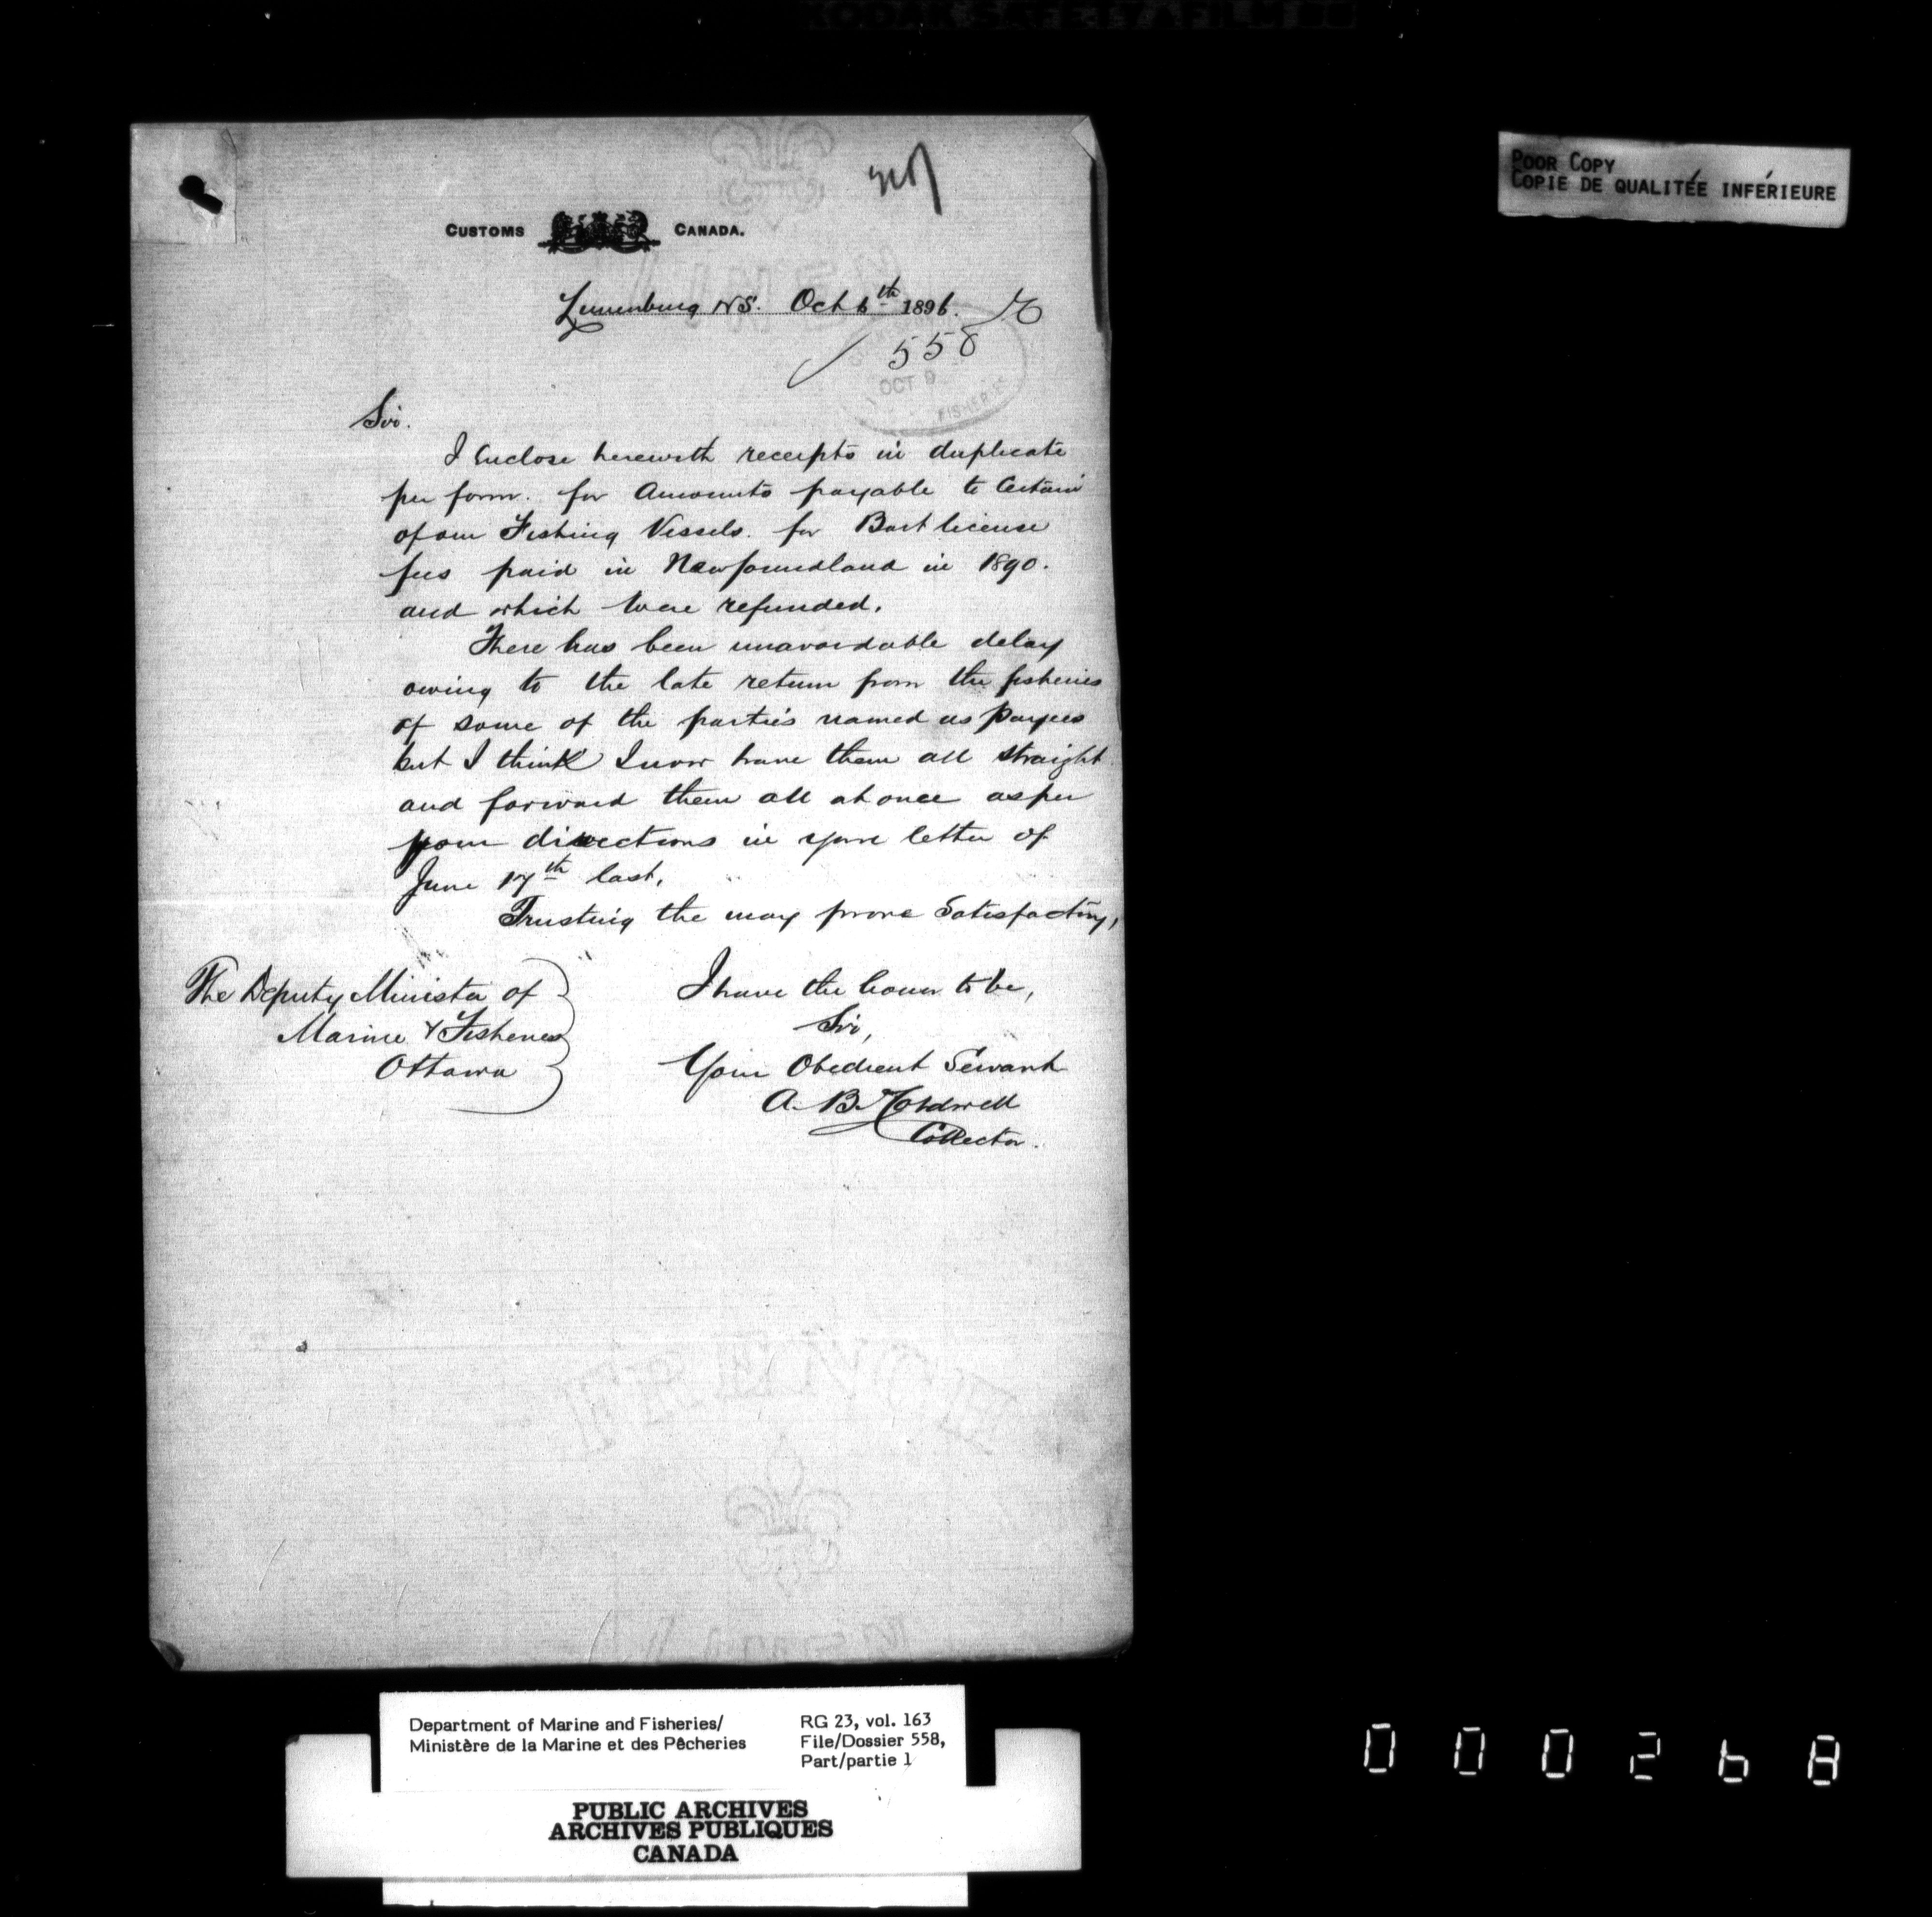 POOR COPY
COPIE DE QUALITÉE INFÉRIEURE
CUSTOMS CANADA.
Lunenburg NS. Oct 6th 1896.
558
OCT 9
FISHERIES
Sir.
I Enclose herewith receipts in duplicate
per form. for Amounts payable to Certain
of our Fishing Vessels. for Bait license
fees paid in Newfoundland in 1890.
and which were refunded.
There has been unavoidable delay
owing to the late return from the fisheries
of some of the parties named as payees
but I think I now have them all straight
and forward them all at once as per
your directions in your letter of
June 17th last.
Trusting the may prove Satisfactory,
I have the honor to be,
Sir,
Your Obedient Servant
A. B.
Collector.
The Deputy Minister of
Marine & Fisheries
Ottawa
Department of Marine and Fisheries/
Ministère de la Marine et des Pêcheries
RG 23, vol. 163
File/Dossier 558,
Part/partie 1
PUBLIC ARCHIVES
ARCHIVES PUBLIQUES
CANADA
000268